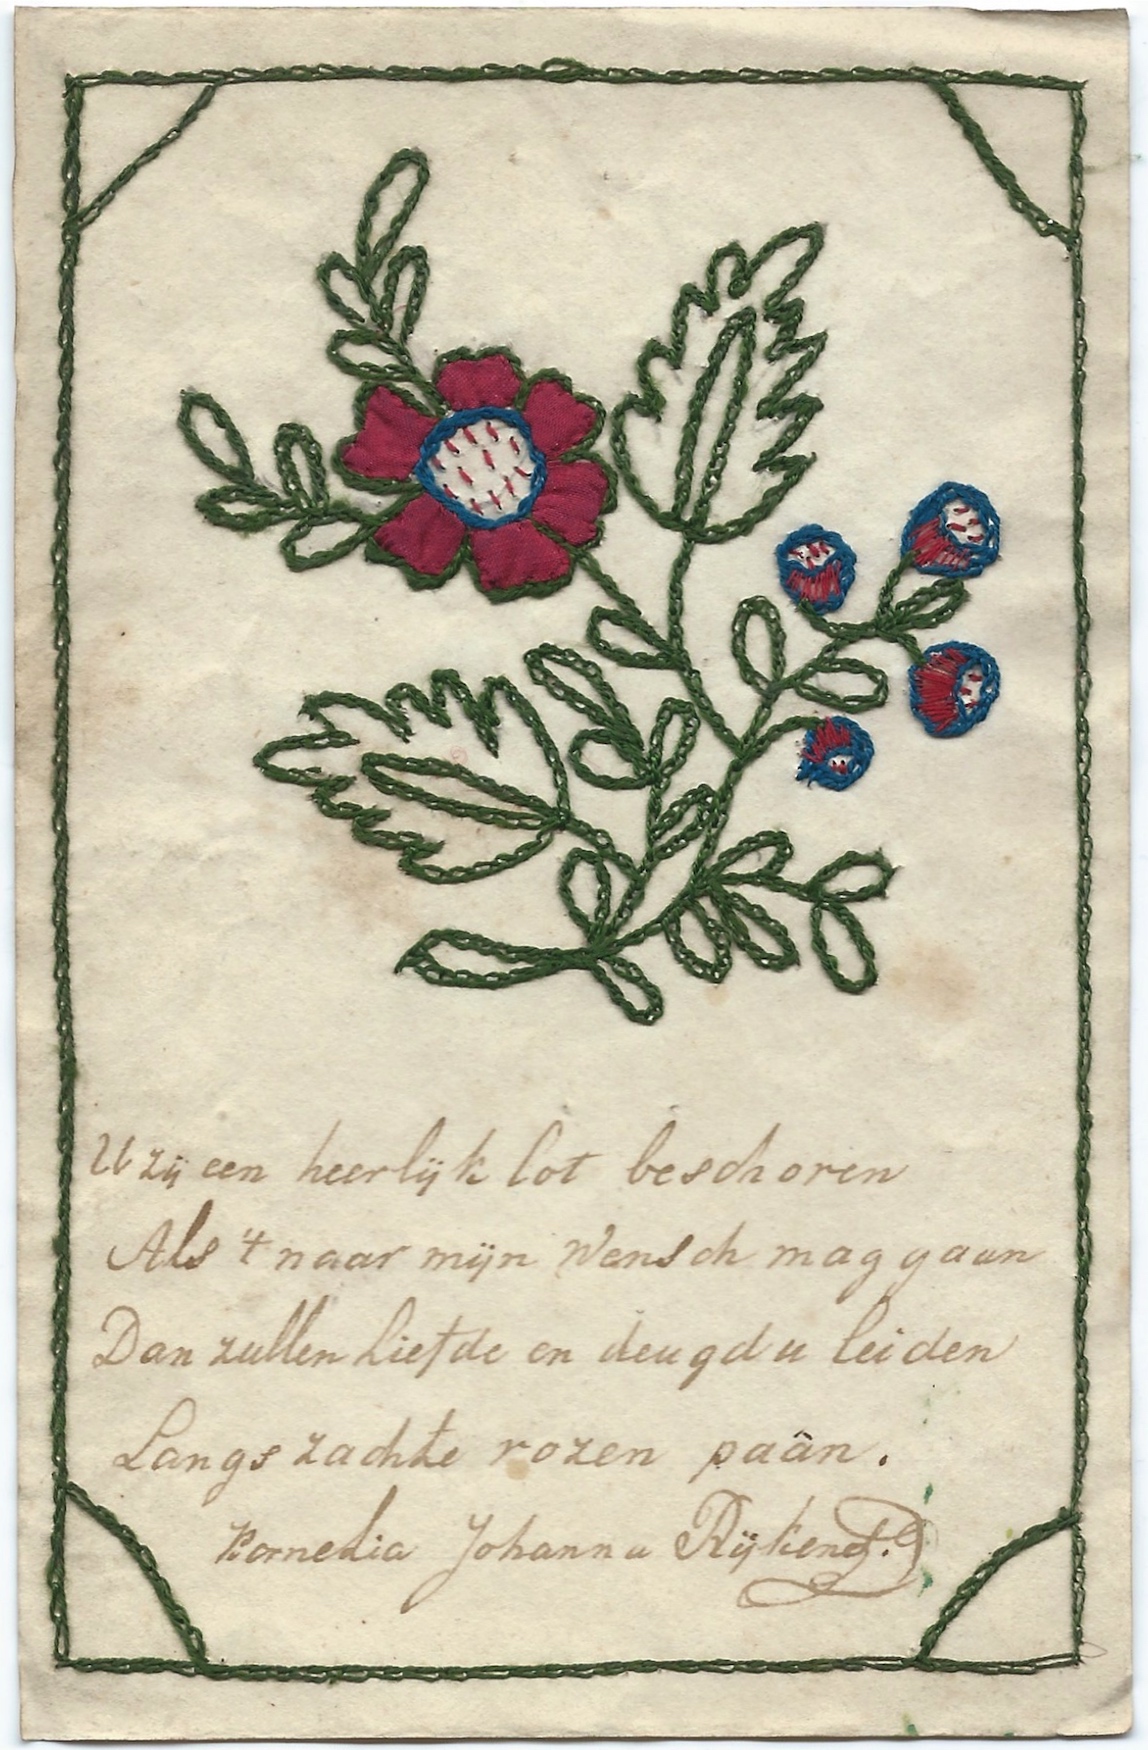 U zij een heerlijk lot beschoren
Als 't naar mijn Wensch mag gaan
Dan zullen liefde en deugd u leiden
Langs zachte rozen paân.
Kornelia Johanna Rijkens.